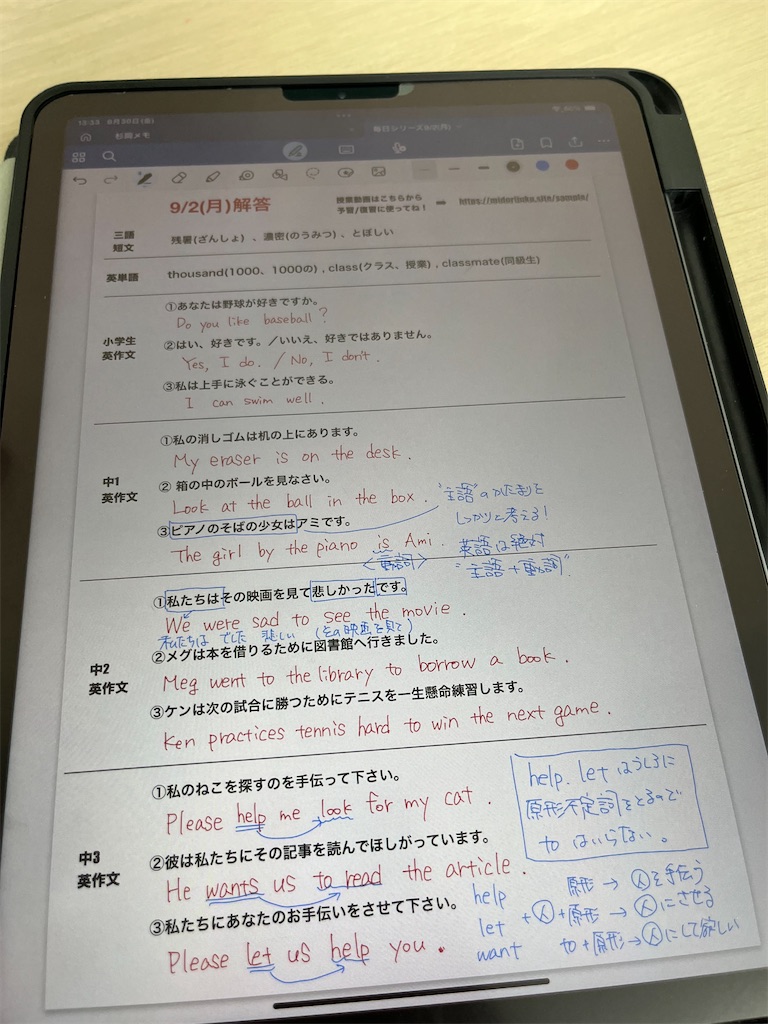 13:33 8月30日(金)
杉岡メモ
毎日シリーズ9/2(月)
9/2(月)解答
授業動画はこちらから
予習/復習に使ってね！ ➡ https://midorijuku.site/sample/
三語
短文
残暑(ざんしょ) 、濃密(のうみつ) 、とぼしい
英単語
thousand(1000、1000の) , class(クラス、授業) , classmate(同級生)
小学生
英作文
①あなたは野球が好きですか。
Do you like baseball ?
②はい、好きです。／いいえ、好きではありません。
Yes, I do. / No, I don't .
③私は上手に泳ぐことができる。
I can swim well .
中1
英作文
①私の消しゴムは机の上にあります。
My eraser is on the desk .
② 箱の中のボールを見なさい。
Look at the ball in the box .
③ピアノのそばの少女はアミです。
The girl by the piano is Ami .
<動詞>
"主語"のかたまりを
しっかりと考える!
英語は絶対
"主語+動詞".
中2
英作文
①私たちはその映画を見て悲しかったです。
We were sad to see the movie .
私たちは でした 悲しい (その映画を見て)
②メグは本を借りるために図書館へ行きました。
Meg went to the library to borrow a book .
③ケンは次の試合に勝つためにテニスを一生懸命練習します。
Ken practices tennis hard to win the next game .
中3
英作文
①私のねこを探すのを手伝って下さい。
Please help me look for my cat .
②彼は私たちにその記事を読んでほしがっています。
He wants us to read the article .
③私たちにあなたのお手伝いをさせて下さい。
Please let us help you .
help. let はうしろに
原形不定詞をとるので
to はいらない。
help 原形 → 人を手伝う
let +人+原形 → 人にさせる
want to+原形→人にして欲しい